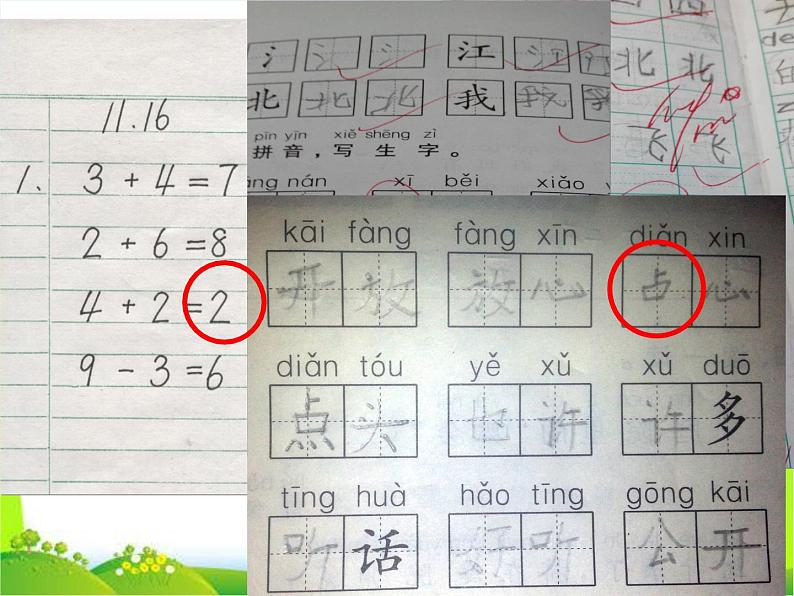 11.16
1. 3 + 4 = 7
2 + 6 = 8
4 + 2 = 2
9 - 3 = 6
氵 氵 氵 江 江
北 北 北 我 我
pīn yīn xiě shēng zì
拼 音 ，写 生 字 。
āng nán xī běi xiǎo
西
北 北
飞 飞
de
白
kāi fàng fàng xīn diǎn xin
开 放 放 心 占 心
diǎn tóu yě xǔ xǔ duō
点 头 也 许 许 多
tīng huà hǎo tīng gōng kāi
听 话 好 听 公 开